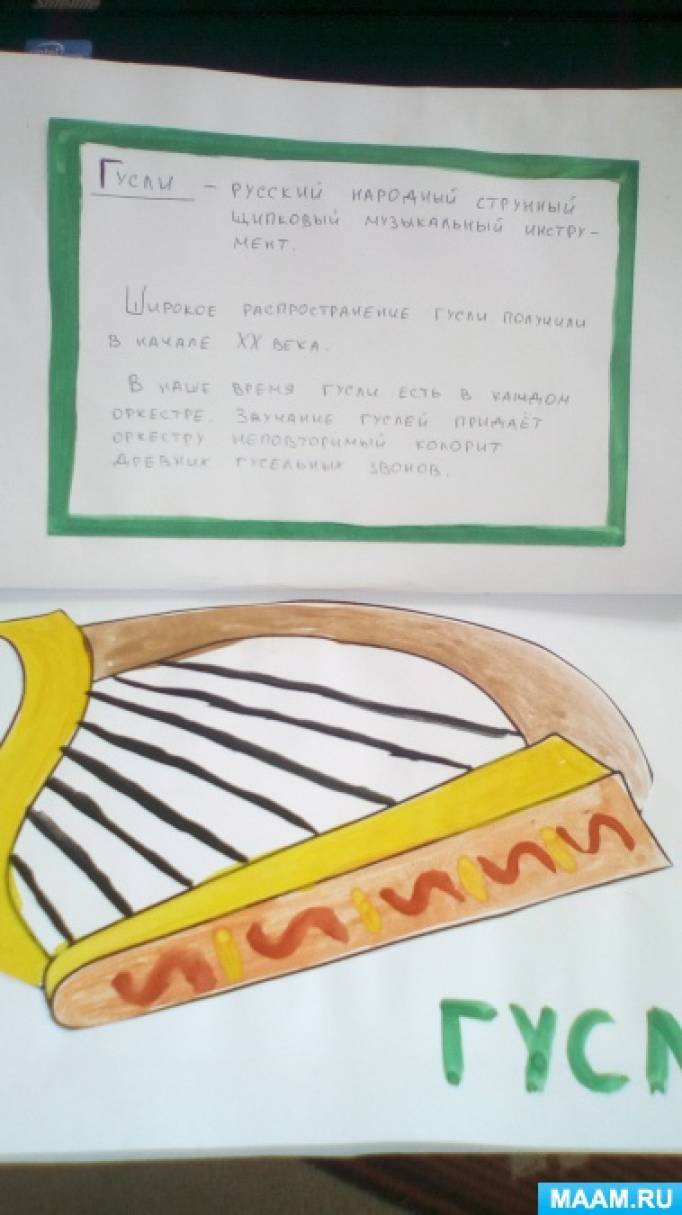 Samsung
intel
Гусли – русский народный струнный
щипковый музыкальный инстру-
мент.
Широкое распространение гусли получили
в начале XX века.
В наше время гусли есть в каждом
оркестре. Звучание гуслей придаёт
оркестру неповторимый колорит
древних гусельных звонов.
ГУСЛ
MAAM.RU